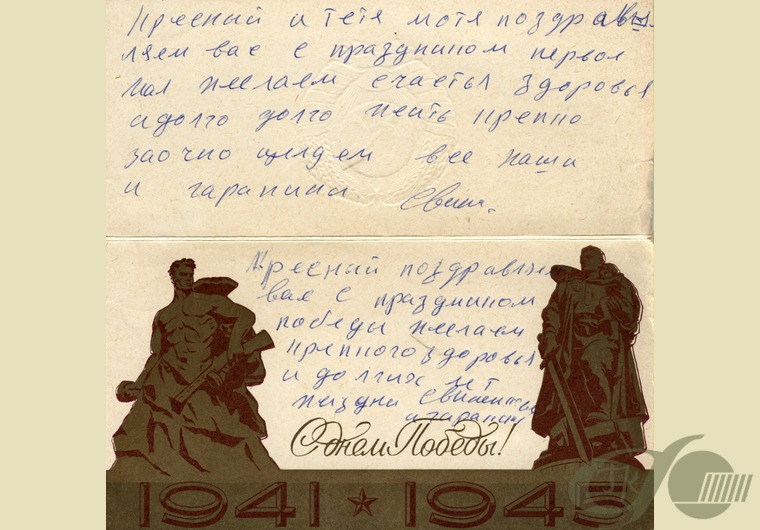 Кресний и тетя мотя поздравы
ляем вас с праздником первое
мая желаем счастья здоровья
и долго долго жить крепко
заочно целуем все наши
и гарапина Свин.
Кресний поздравляем
вас с праздником
победы желаем
крепкого здоровья
и долгих лет
жизни
и гарапин
С днем Победы!
1941 ★ 1945